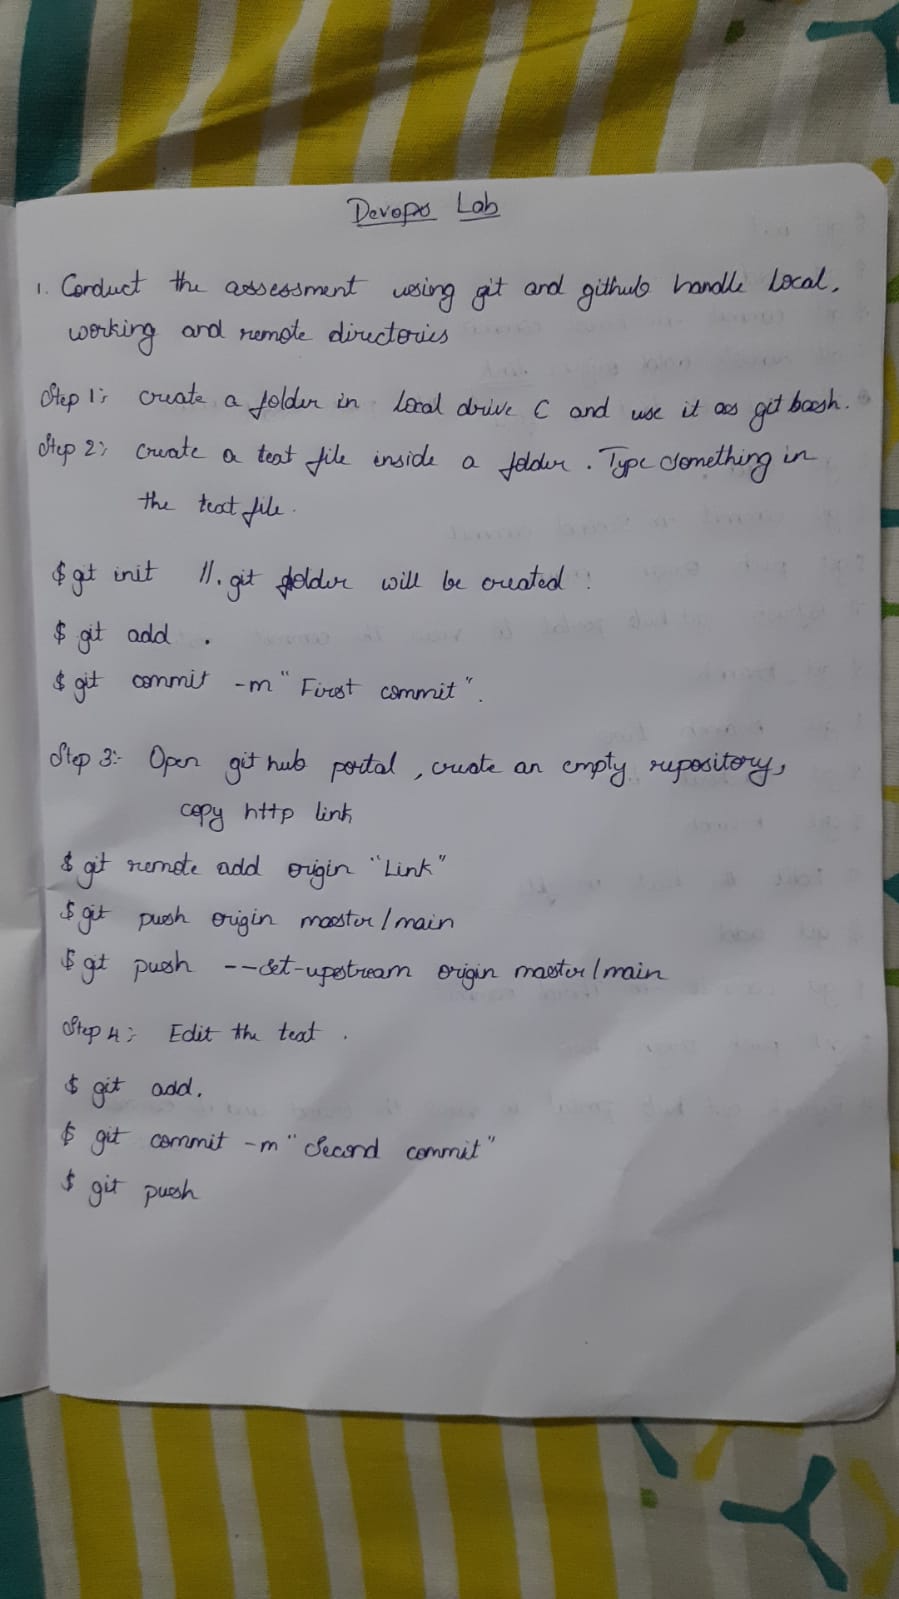 Devops Lab
1. Conduct the assessment using git and github handle local,
working and remote directories
Step 1:- create a folder in local drive C and use it as git bash.
Step 2:- create a text file inside a folder. Type something in
the text file.
$ git init //.git folder will be created
$ git add .
$ git commit -m "First commit".
Step 3:- Open git hub portal, create an empty repository,
copy http link
$ git remote add origin "Link"
$ git push origin master/main
$ git push --set-upstream origin master/main
Step 4:- Edit the text.
$ git add.
$ git commit -m "Second commit"
$ git push